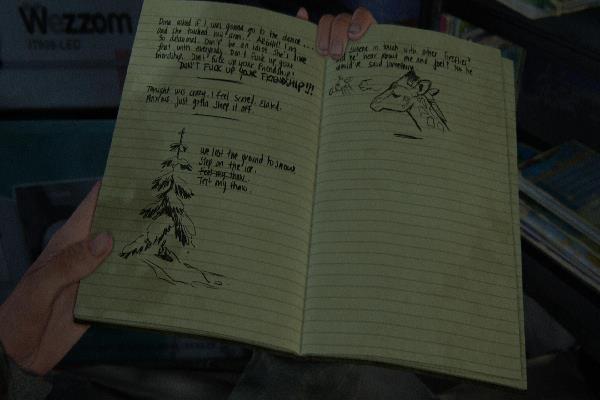 Wezzom
Dina asked if I was gonna go to the dance ...
and she touched my arm. I ABSOLUTELY I'm
so delusional. Don't be an idiot. She's like
that with everybody. Don't fuck up your
friendship. Don't fuck up your friendship!
DON'T FUCK UP YOUR FRIENDSHIP!!!
Thought was crazy. I feel scared. Elated.
Anxious. Just gotta sleep it off.
we lost the ground to snow
Step on the ice,
Feel my thaw
Test my thaw.
in touch with other fireflies?
hear about me and Joel? No, he
would've said something.